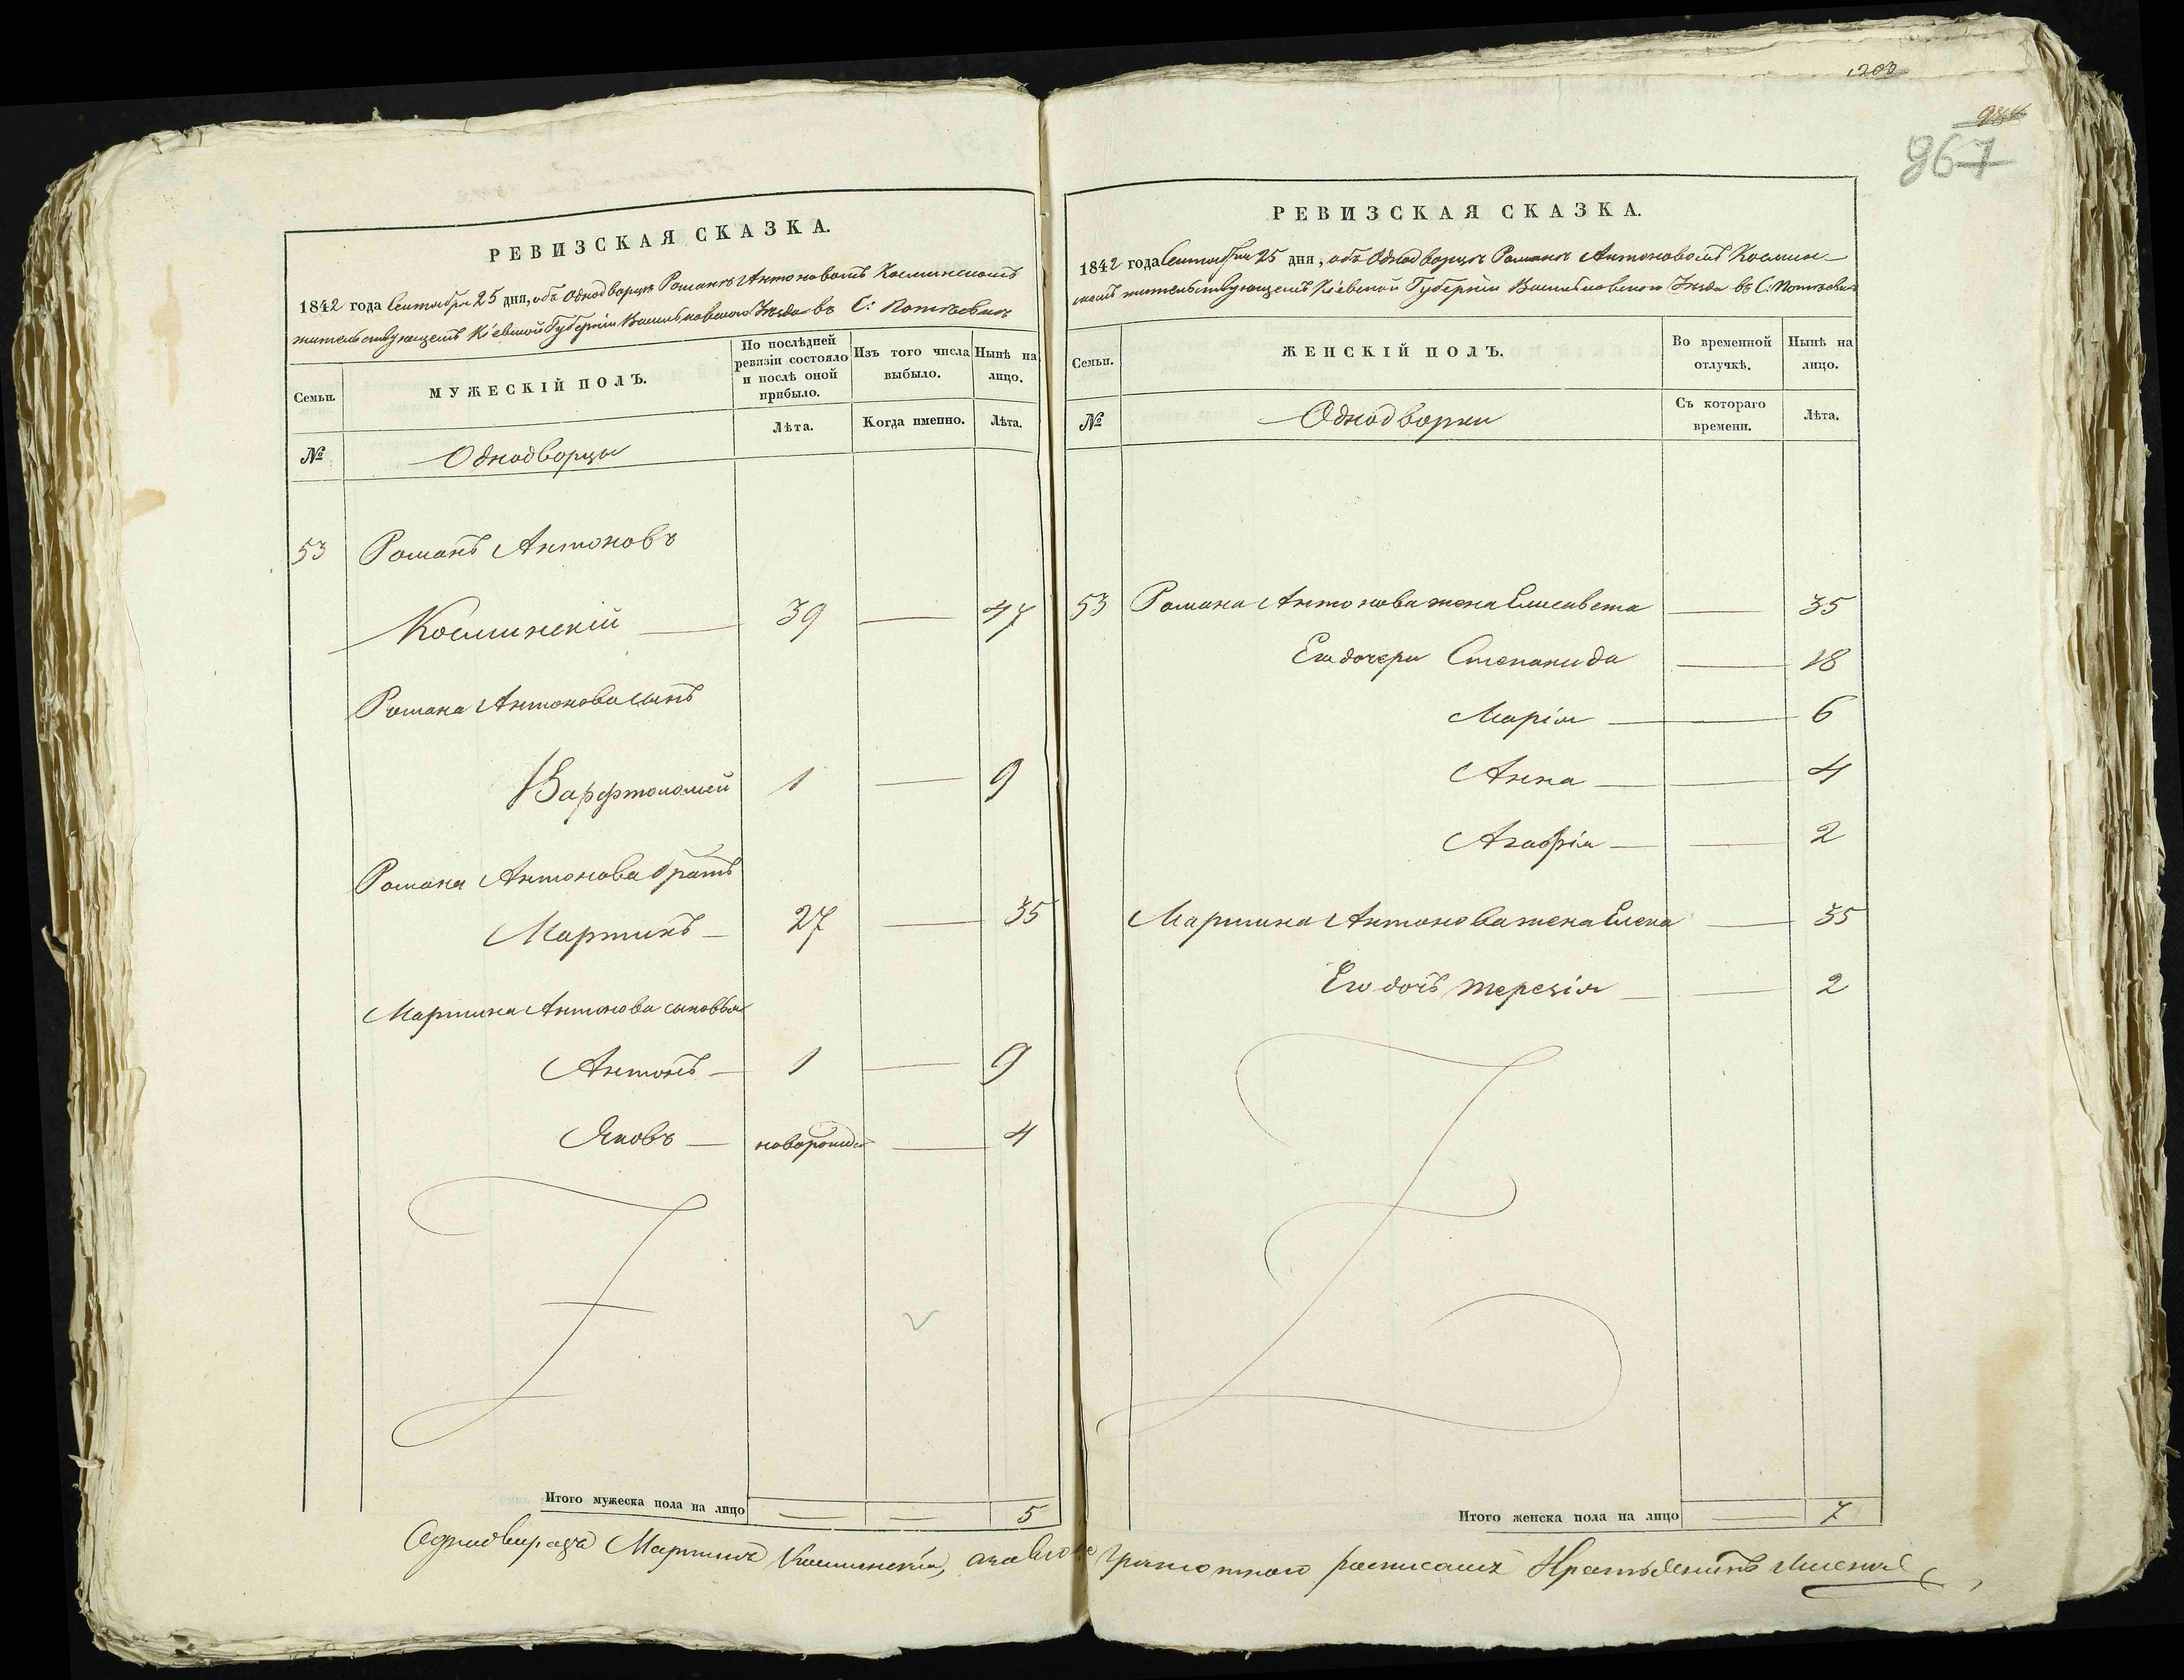 203
967
РЕВИЗСКАЯ СКАЗКА.
1842 года Сентября 25 дня, объ Однодворцѣ Романѣ Антоновомъ Косминскомъ
жительствующемъ Кіевской Губерніи Васильковскаго Уѣзда въ С:
Семьи. МУЖЕСКІЙ ПОЛЪ. По послѣдней ревизіи состояло и послѣ оной прибыло. Изъ того числа выбыло. Нынѣ на лицо.
№ Однодворцы Лѣта. Когда именно. Лѣта.
53 Романъ Антоновъ
Косминскій — 39 — 47
Романа Антонова сынъ
Варфтоломей 1 — 9
Романа Антонова братъ
Мартинъ — 27 — 35
Мартина Антонова сыновья
Антонъ — 1 — 9
Яковъ — новорожд — 4
Итого мужеска пола на лицо = = 5
РЕВИЗСКАЯ СКАЗКА.
1842 года Сентября 25 дня, объ Однодворцѣ Романѣ Антоновомъ Космин-
скомъ жительствующемъ Кіевской Губерніи Васильковскаго Уѣзда въ С:
Семьи. ЖЕНСКІЙ ПОЛЪ. Во временной отлучкѣ. Нынѣ на лицо.
№ Однодворки Съ котораго времени. Лѣта.
53 Романа Антонова жена Елисавета — 35
Его дочери Степанида — 18
Марія — — 6
Анна — — 4
Агафія — — 2
Мартина Антонова жена Елена — 35
Его дочь Терезія — — 2
Итого женска пола на лицо = 7
Мартинъ Косминскій, а за его не грамотного росписался